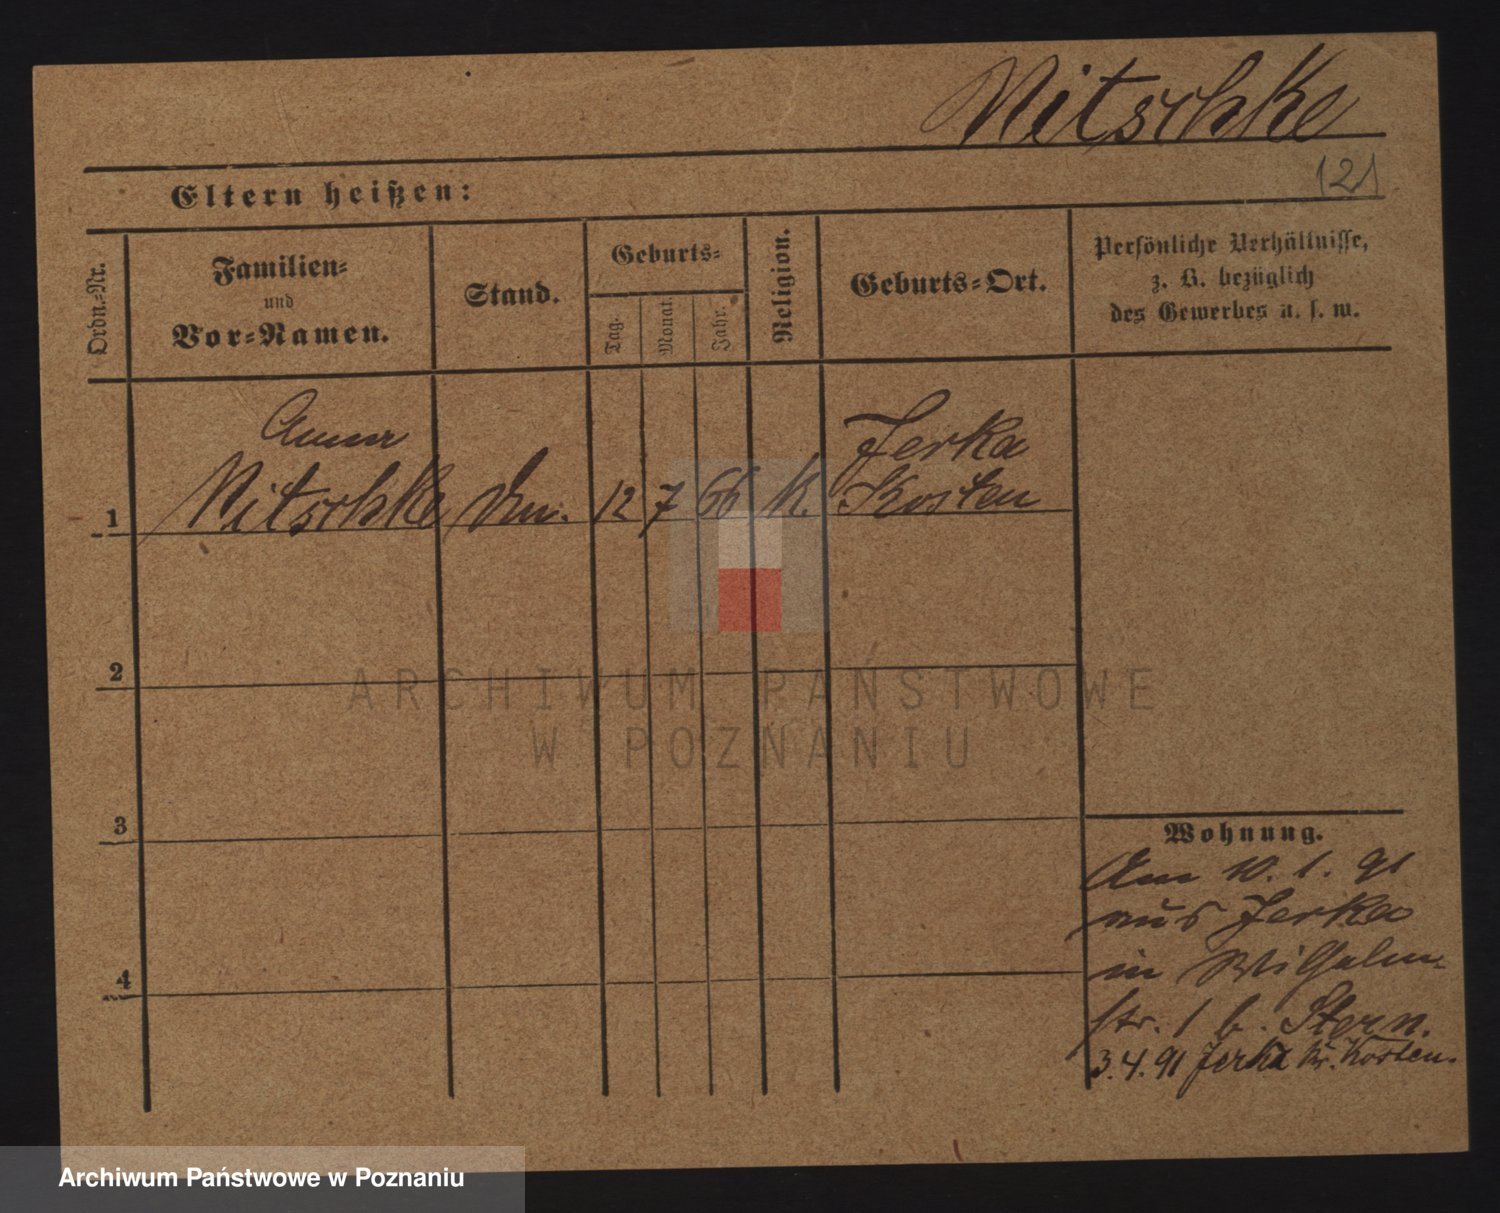 Nitschke
121
Eltern heißen:
Ordn.-Nr.
Familien-
und
Vor-Namen.
Stand.
Geburts-
Tag.
Monat.
Jahr.
Religion.
Geburts-Ort.
Persönliche Verhältnisse,
z. B. bezüglich
des Gewerbes u. s. w.
Anna
Nitschke
1
12
7
66
K.
Jerka
Kosten
2
3
4
ARCHIWUM PAŃSTWOWE
W POZNANIU
Wohnung.
Am 10. 1. 91
aus Jerka
in Wilhelm-
str. 1 b. Stern.
3.4.91 Jerka Kr. Kosten.
Archiwum Państwowe w Poznaniu